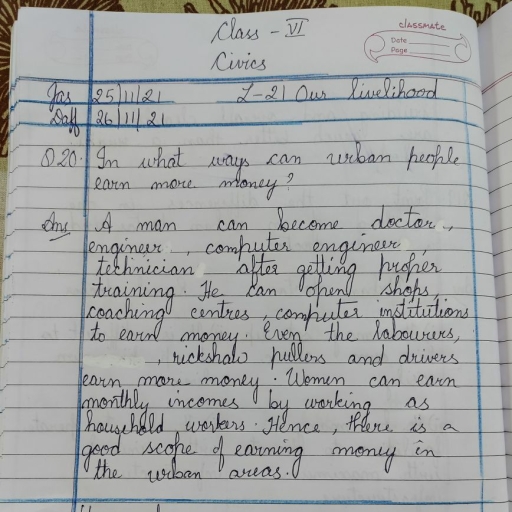 Class - VI
classmate
Date
Page
Civics
Jas 25/11/21 L-21 Our livelihood
Daff 26/11/21
Q20. In what ways can urban people
earn more money?
Ans. A man can become doctor,
engineer, computer engineer,
technician after getting proper
training. He can open shops,
coaching centres, computer institutions
to earn money. Even the labourers,
, rickshaw pullers and drivers
earn more money. Women can earn
monthly incomes by working as
household workers. Hence, there is a
good scope of earning money in
the urban areas.